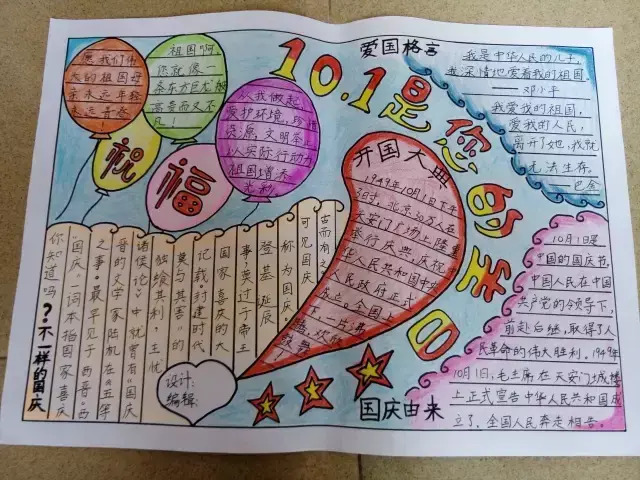 愿我们伟
大的祖国母
亲永远年轻
永远青春！
祖国啊，
您就像一
条东方巨龙，
高贵而又不
凡！
从我做起
爱护环境，珍惜
资源，文明茶
以实际行动为
祖国增添
光彩。
祝
福
10.1是您的生日
爱国格言
我是中华人民的儿子，
我深情地爱着我的祖国。
——邓小平
我爱我的祖国，
爱我的人民，
离开了她，我就
无法生存。
——巴金
开国大典
1949年10月1日下午
3时，北京30万人在
天安门广场上隆重
举行庆典，庆祝中
华人民共和国中央
人民政府正式
成立。全国上
下一片
腾，欢欣
鼓舞
你知道吗？不一样的国庆
“国庆”一词本指国家喜庆
之事。最早见于西晋。西
晋的文学家陆机在《五等
诸侯论》中就曾有“国庆
独飨其利，主忧
莫与其害”的
记载封建时代
国家喜庆的大
事，莫过于帝王
登基诞辰
称为国庆
可见国庆
古而有之
设计：
编辑：
国庆由来
10月1日是
中国的国庆节，
中国人民在中国
共产党的领导下，
前赴后继，取得了人
民革命的伟大胜利。1949年
10月1日，毛主席在天安门城楼
上正式宣告中华人民共和国成
立了，全国人民奔走相告。